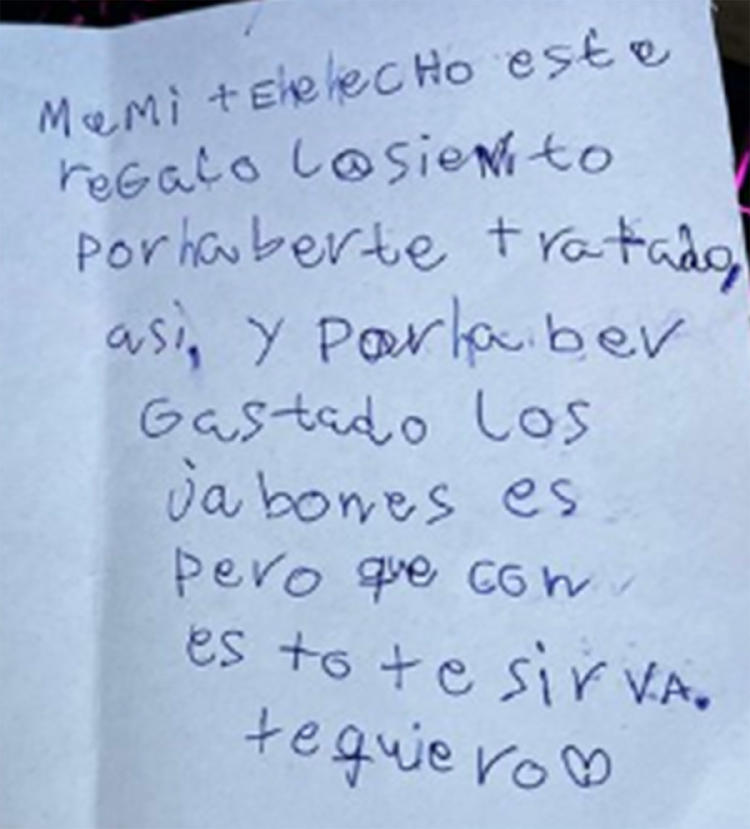 MeMi tEhehecHo este
reGalo losiento
porhaberte tratado,
asi, y Porhaber
Gastado los
jabones es
pero que con
esto te sirVA.
tequiero♡